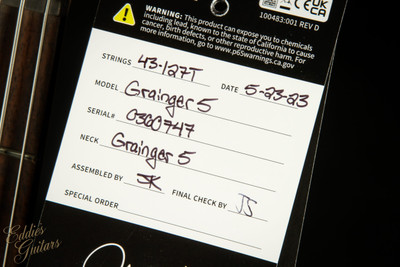 WARNING: This product can expose you to chemicals
including lead, known to the state of California to cause
cancer, birth defects, or other reproductive harm. For
more information, go to www.p65warnings.ca.gov
100483:001 REV D
UK
CA
STRINGS 43-127T DATE 5-23-23
MODEL Grainger 5
SERIAL# 0360747
NECK Grainger 5
ASSEMBLED BY JK FINAL CHECK BY JS
SPECIAL ORDER
Eddie's
Guitars